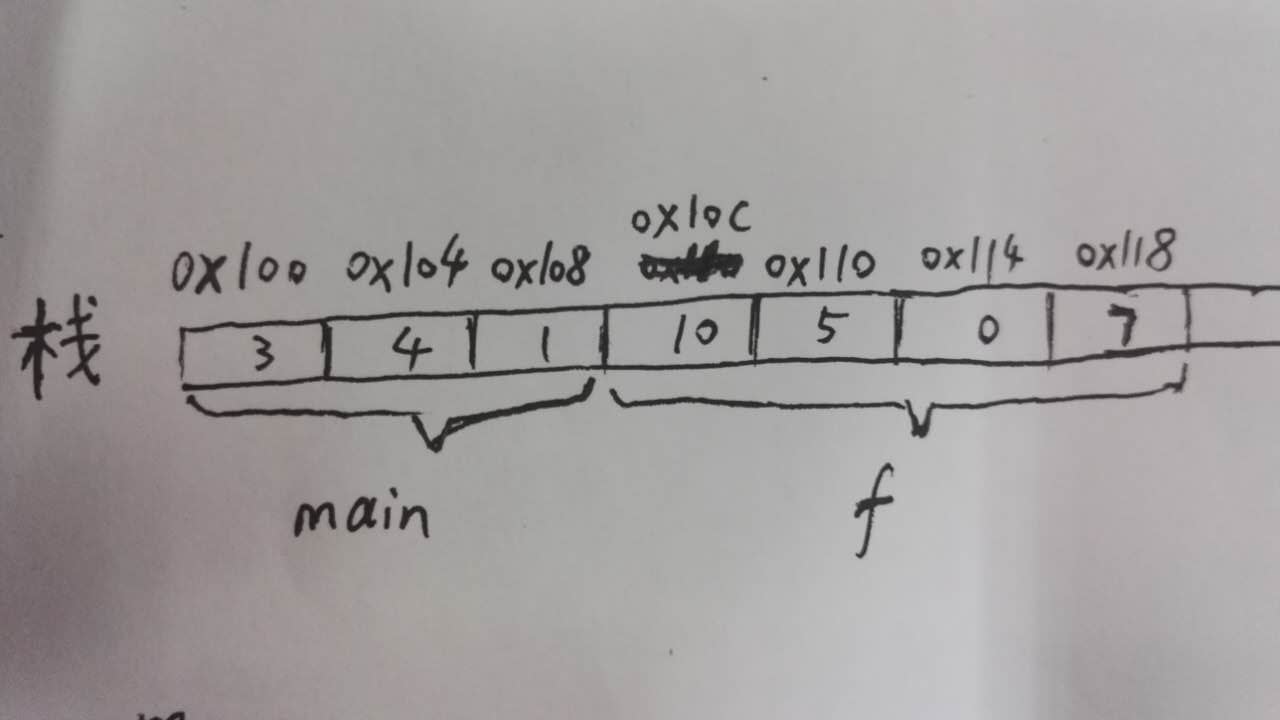 0x10C
0x100 0x104 0x108 0x110 0x114 0x118
栈 3 4 1 10 5 0 7
main f